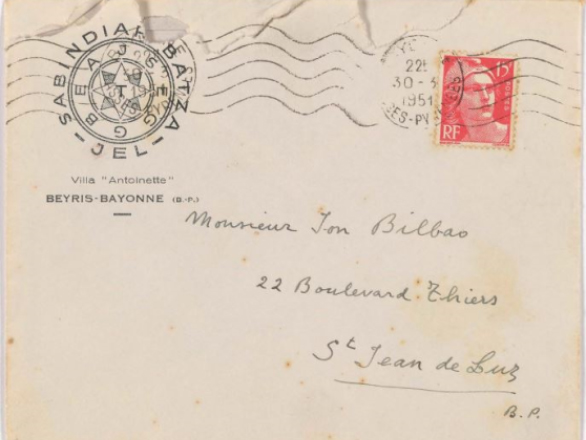 SABINDIAR-BATZA
- JEL -
Villa "Antoinette"
BEYRIS-BAYONNE (B.-P.)
22
30 -
1951
15
RF
Monsieur Jon Bilbao
22 Boulevard Thiers
St Jean de Luz
B.P.